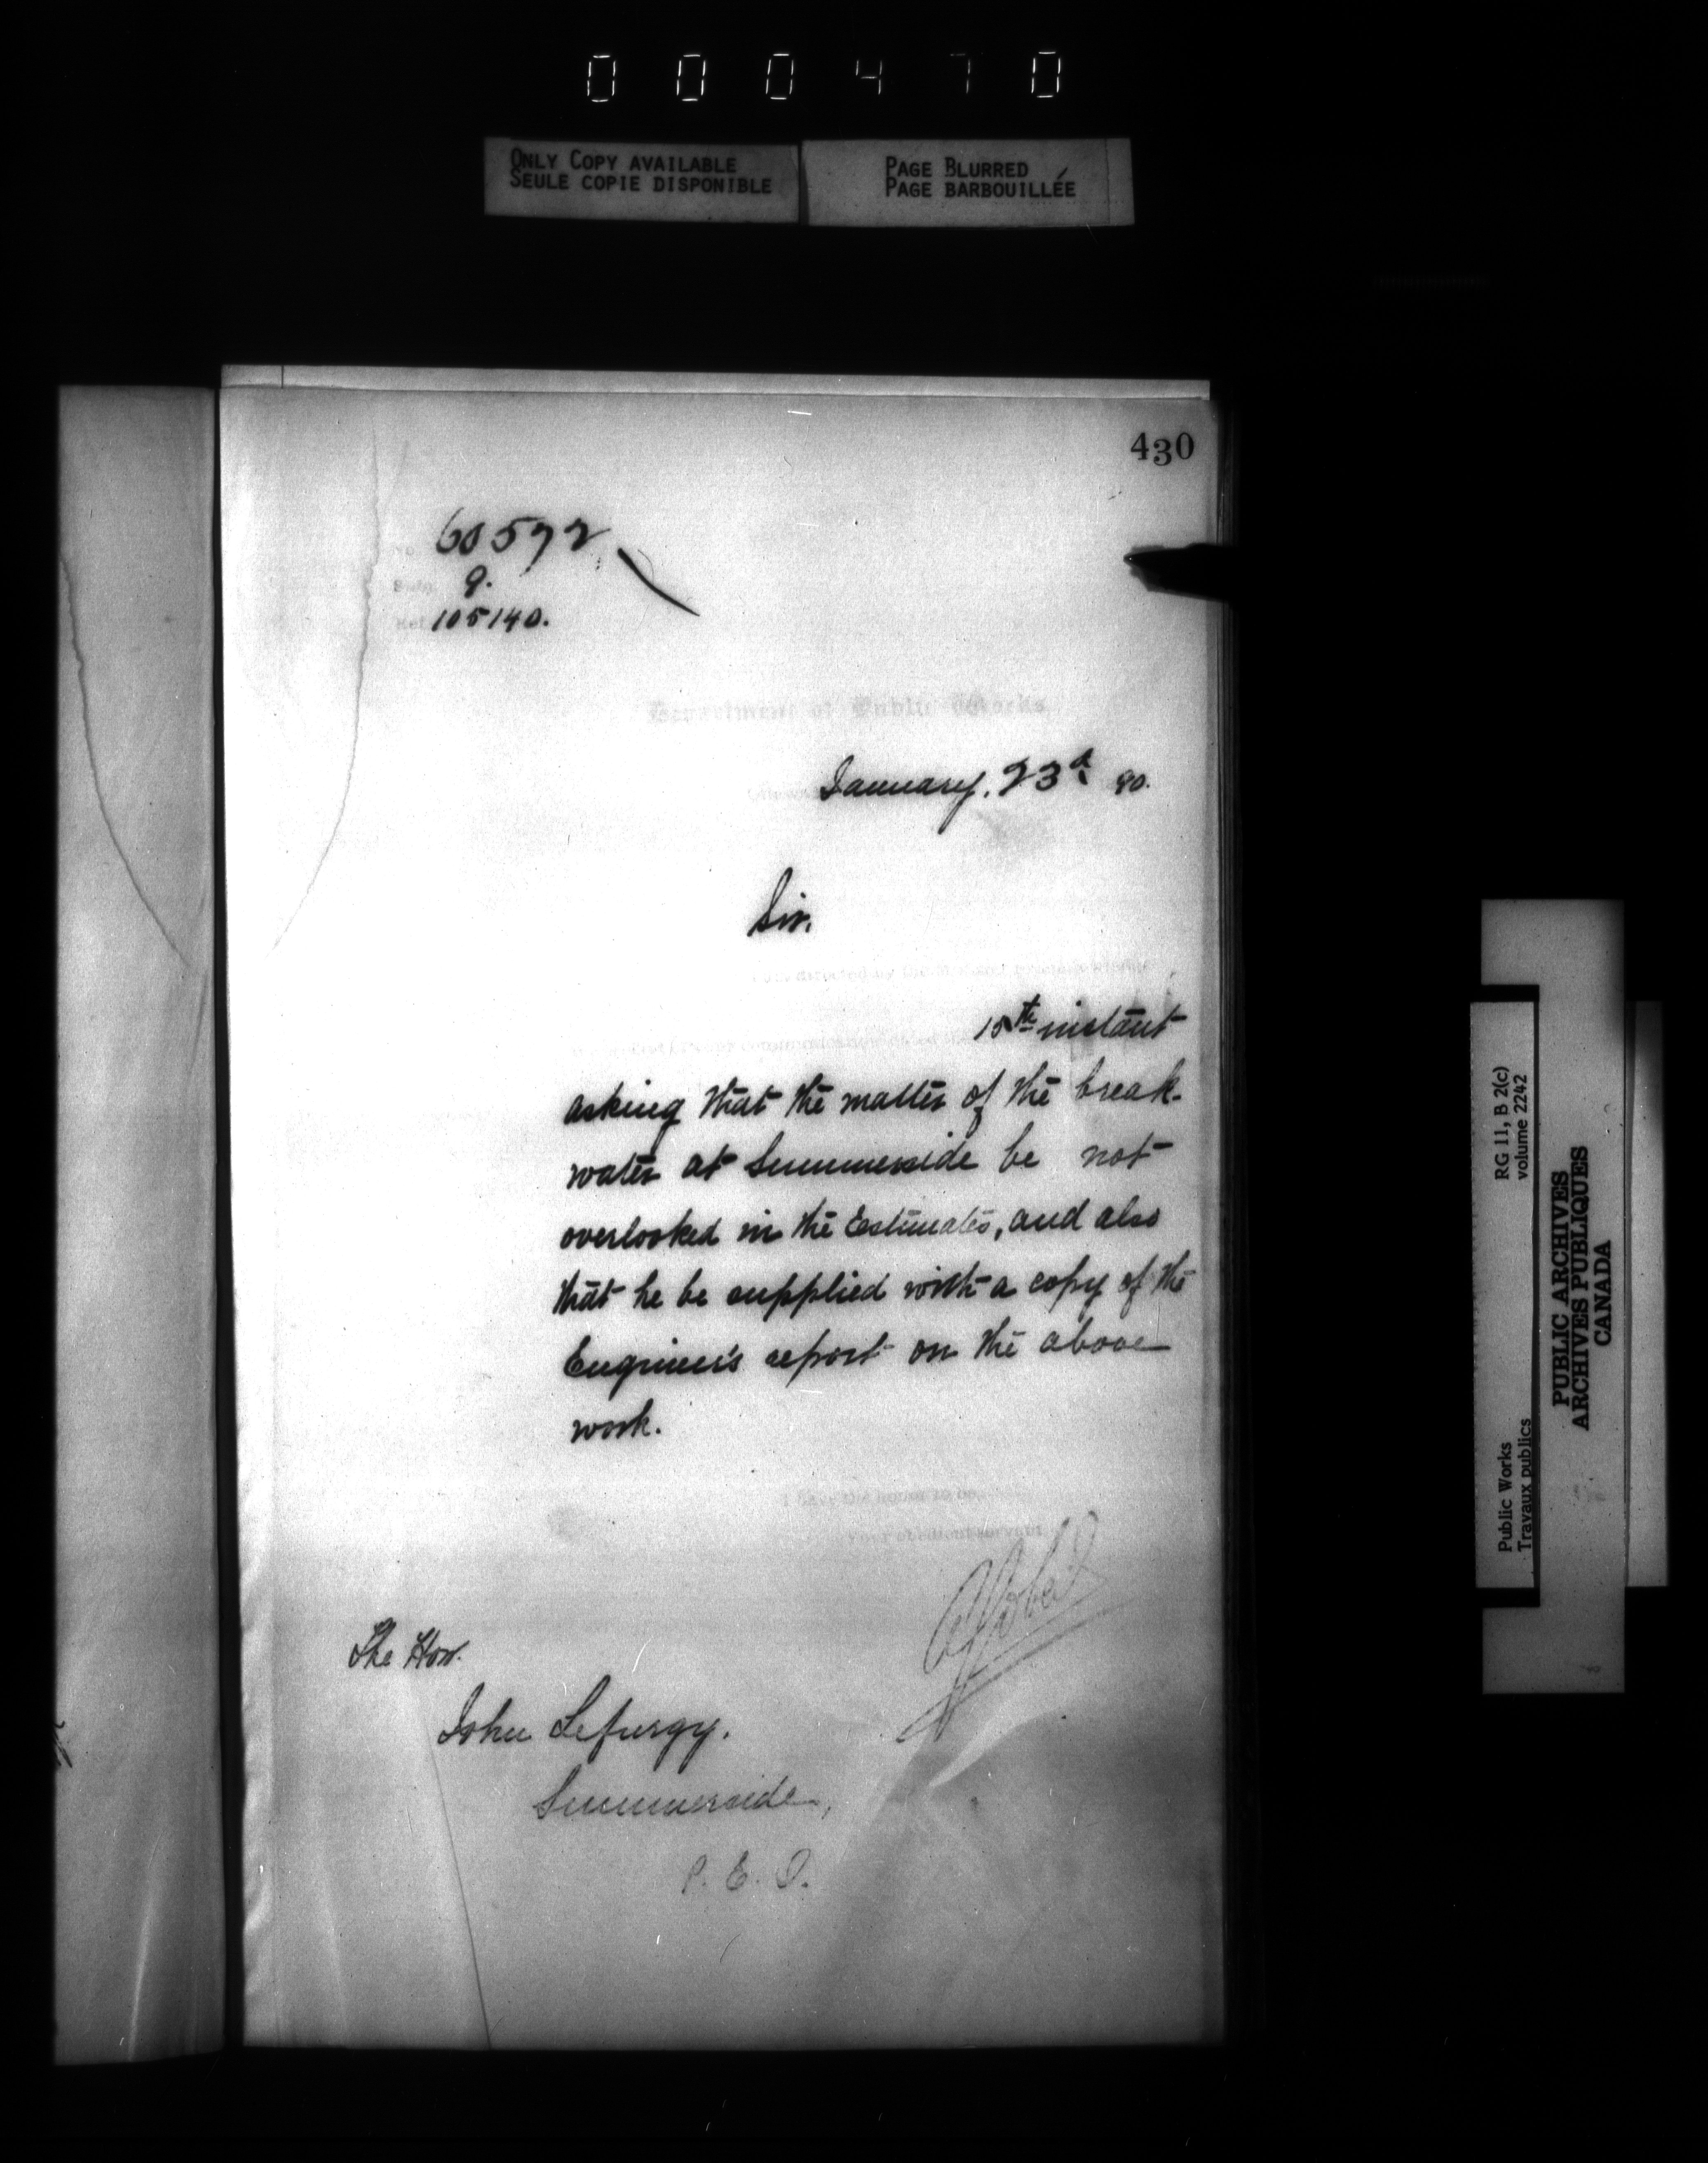 000470
ONLY COPY AVAILABLE
SEULE COPIE DISPONIBLE
PAGE BLURRED
PAGE BARBOUILLÉE
430
No. 60572
Subj. 9.
Ref. 105140.
Department of Public Works
January, 23d 90.
Sir.
15th instant
asking that the matter of the break-
water at Summerside be not
overlooked in the Estimates, and also
that he be supplied with a copy of the
Engineer's report on the above
work.
I have the honor to be,
Your obedient servant
The Hon.
John Lefurgy.
Summerside,
P. E. I.
RG 11, B 2(c)
volume 2242
Public Works
Travaux publics
PUBLIC ARCHIVES
ARCHIVES PUBLIQUES
CANADA